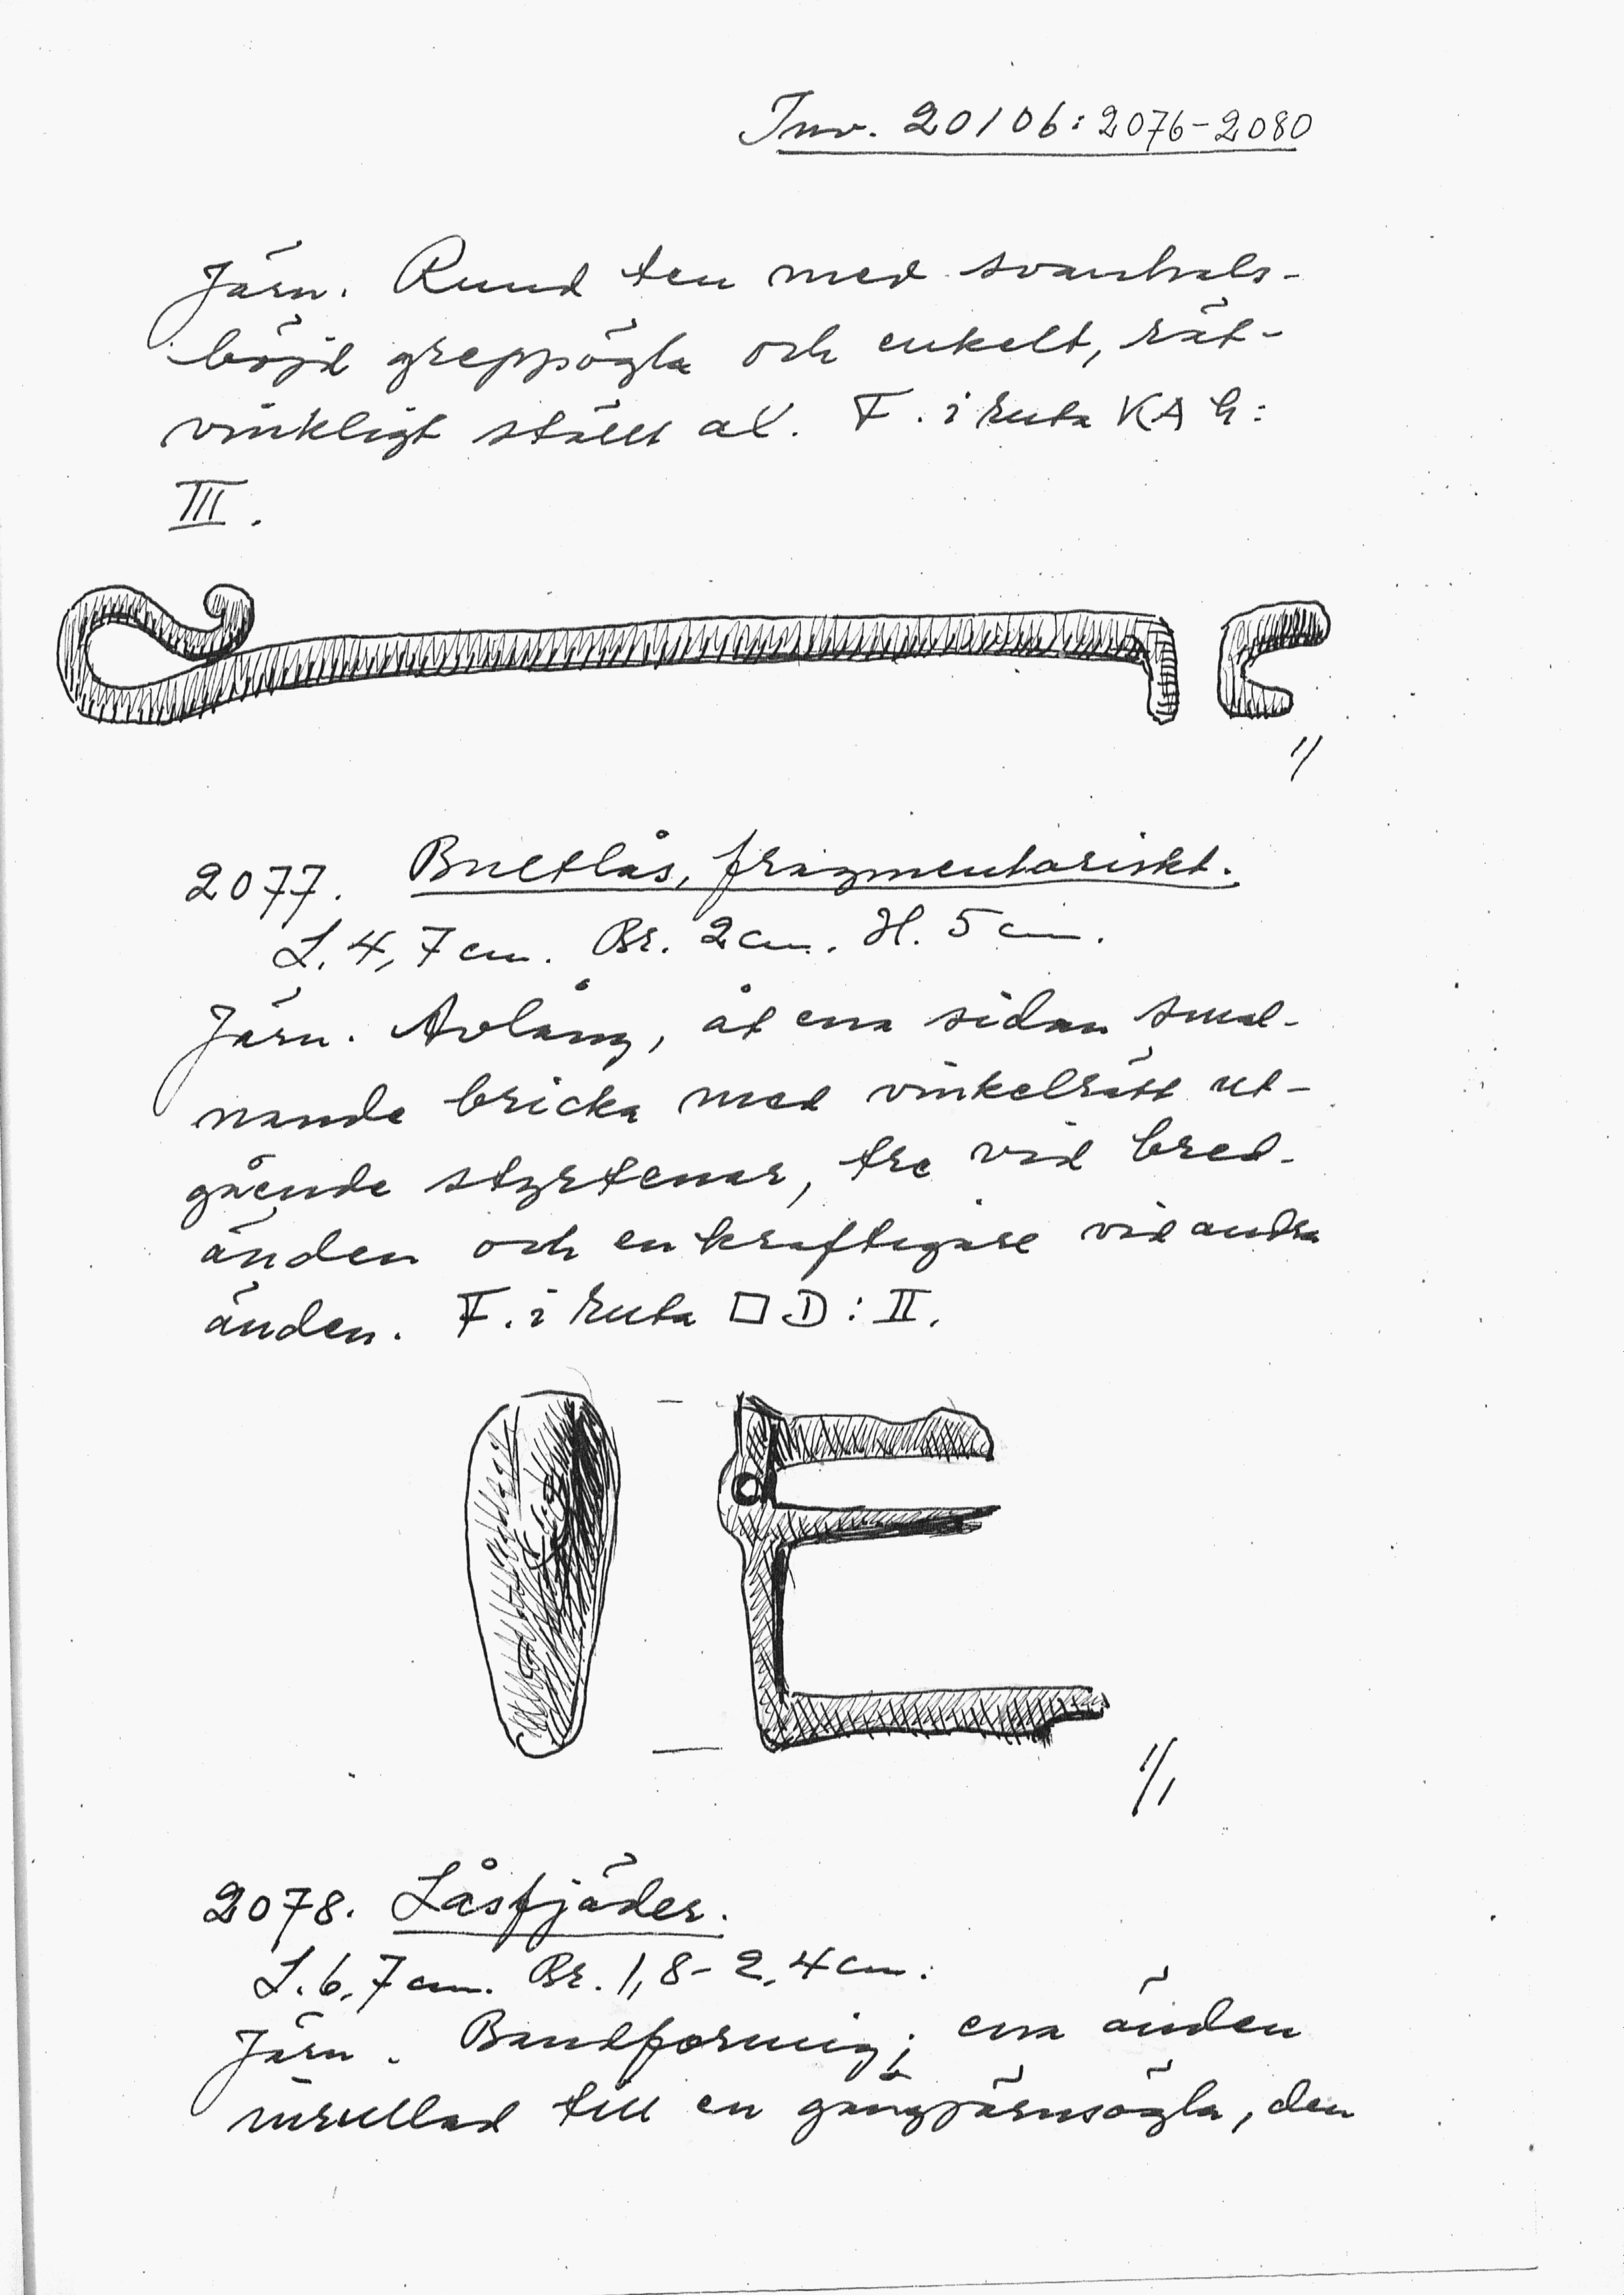 Inv. 20106:2076-2080
Järn. Rund ten med svanhals-
böjd greppögla och enkelt, rät-
vinkligt ställt ax. F. i ruta KA G:
III.
1/
2077. Bultlås, fragmentariskt.
L. 4,7 cm. Br. 2 cm. H. 5 cm.
Järn. Avlång, åt ena sidan smal-
nande bricka med vinkelrätt ut-
gående styrtenar, tre vid bred-
änden och en kraftigare vid andra
änden. F. i ruta □ D: II.
1/1
2078. Låsfjäder.
L. 6,7 cm. Br. 1,8-2,4 cm.
Järn. Bandformig; ena änden
inrullad till en gångjärnsögla, den